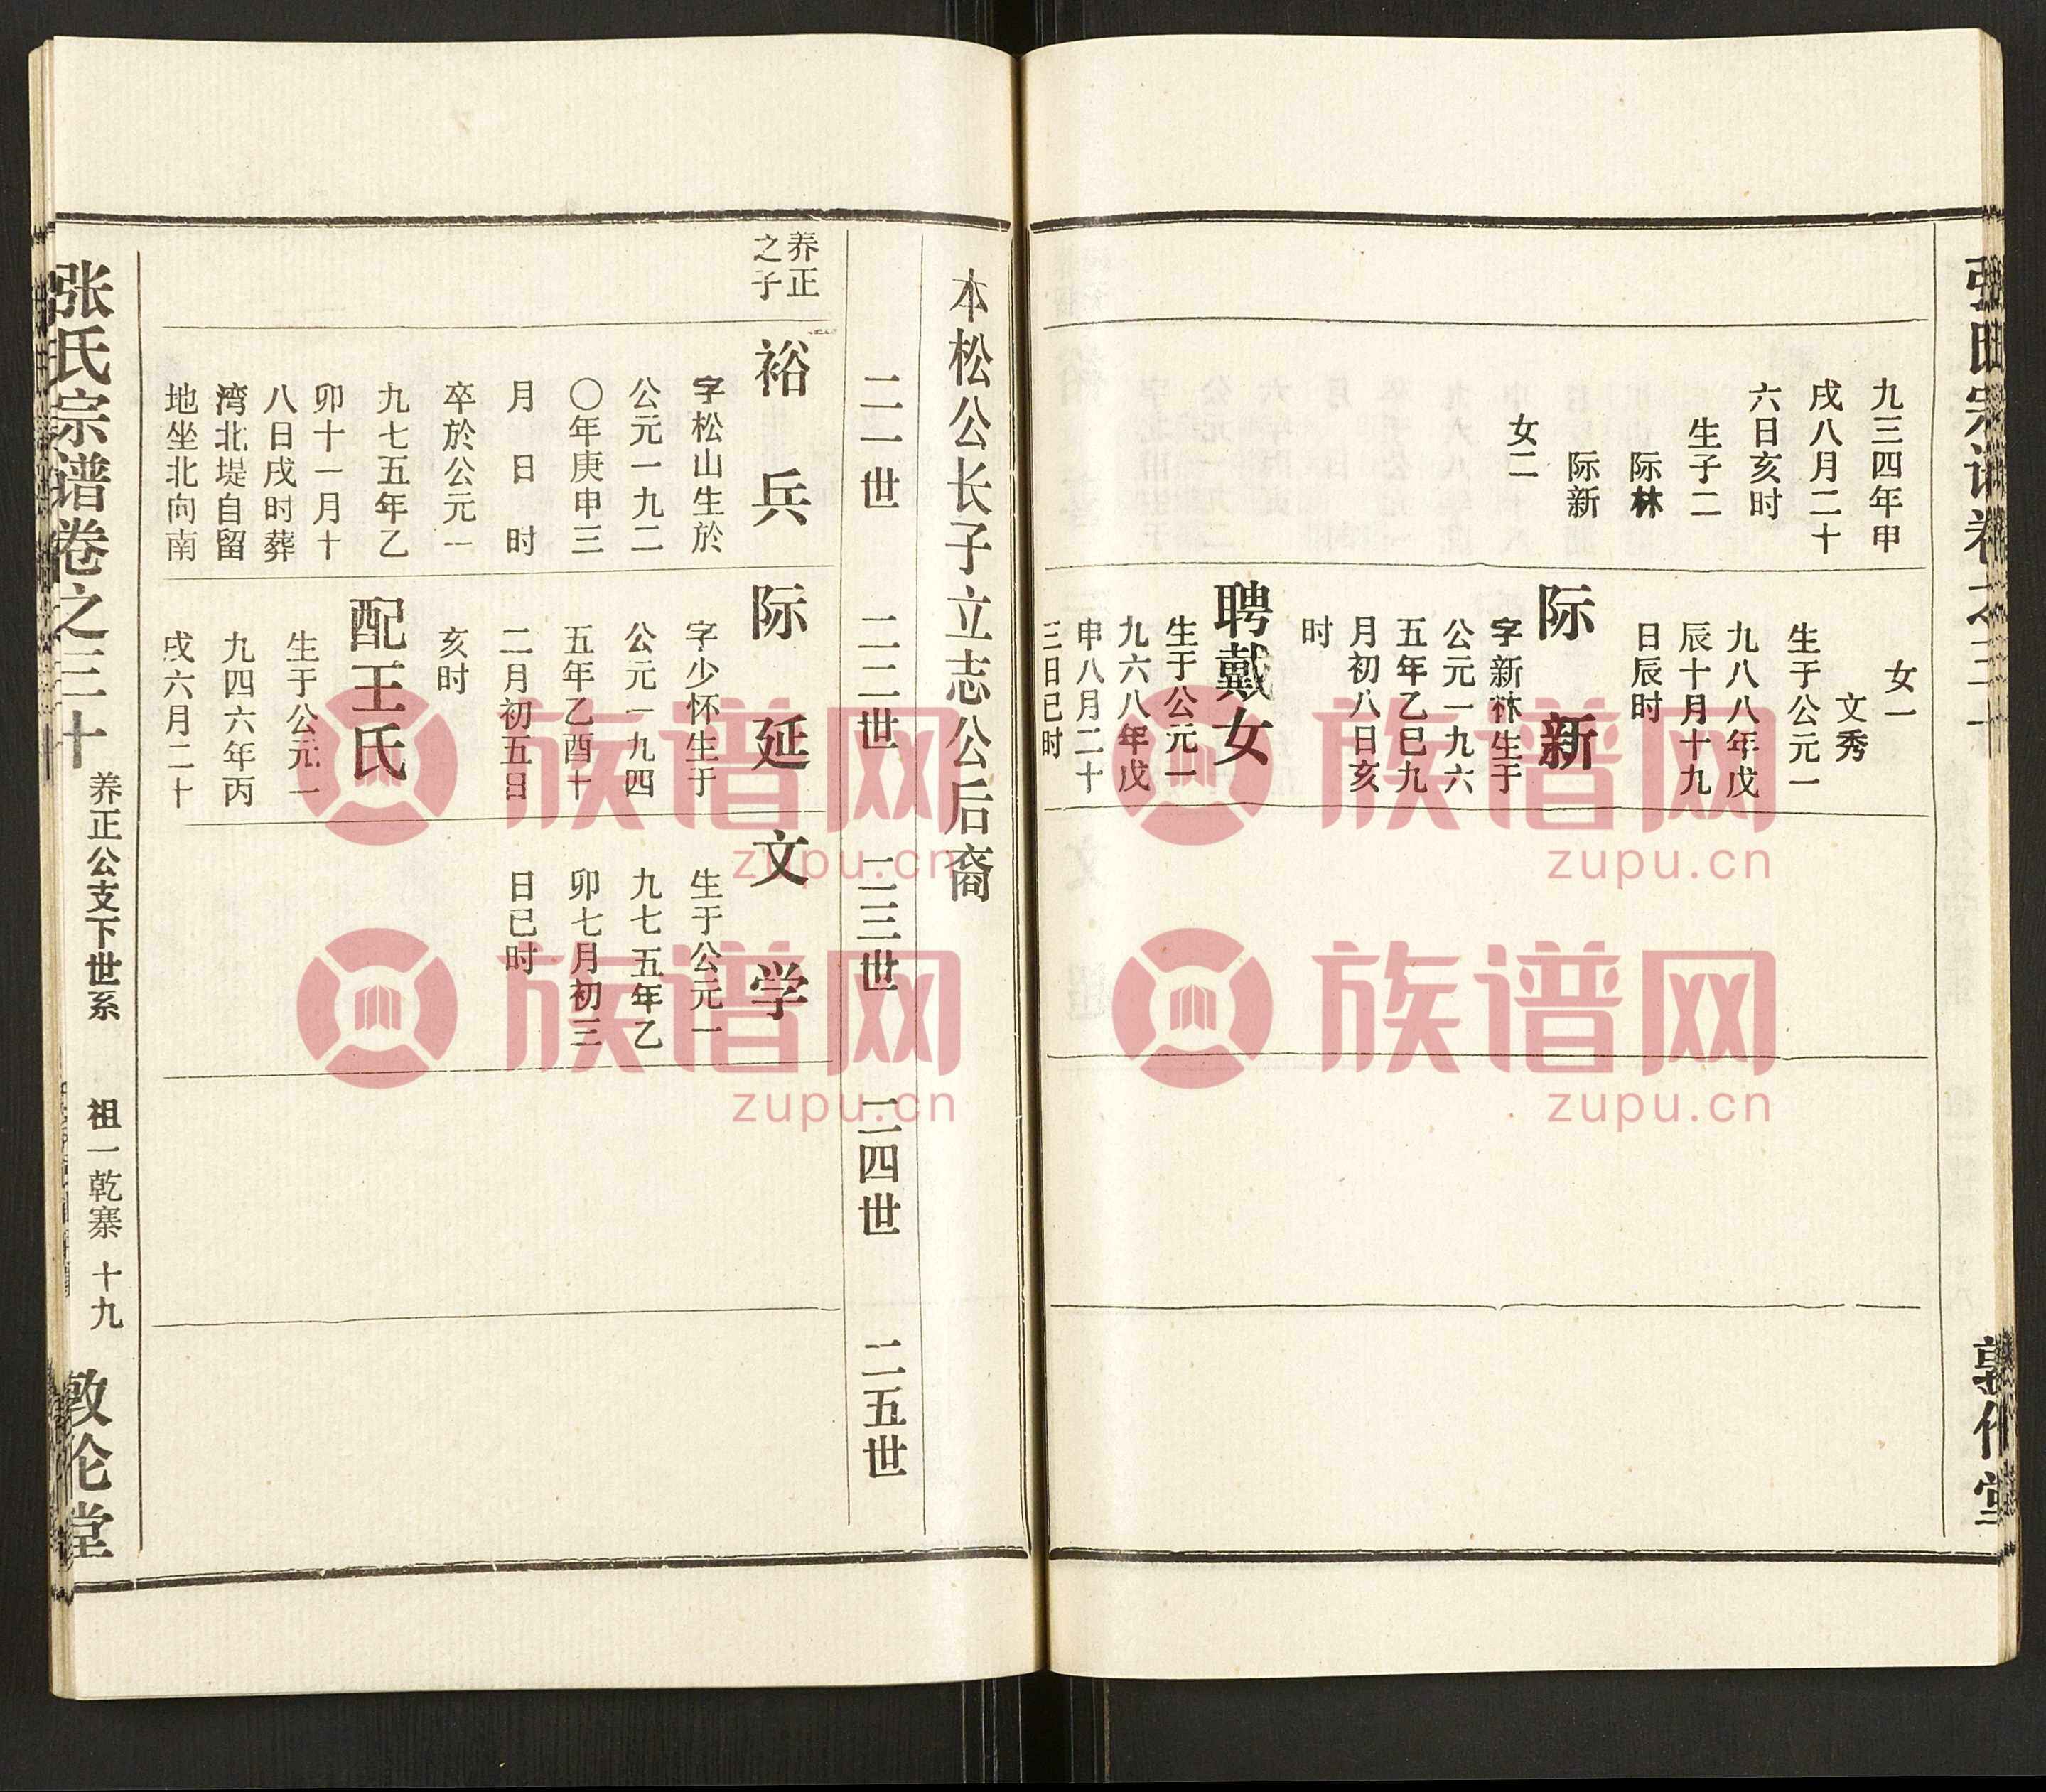 九三四年甲
戌八月二十
六日亥时
生子二
际林
际新
女二
女一
文秀
生于公元一
九八八年戊
辰十月十九
日辰时
际新
字新林生于
公元一九六
五年乙巳九
月初八日亥
时
聘戴女
生于公元一
九六八年戊
申八月二十
三日巳时
本松公长子立志公后裔
二一世
二二世
二三世
二四世
二五世
养正
之子
裕兵
字松山生於
公元一九二
〇年庚申三
月 日 时
卒於公元一
九七五年乙
卯十一月十
八日戌时葬
湾北堤自留
地坐北向南
际延
字少怀生于
公元一九四
五年乙酉十
二月初五日
亥时
配王氏
生于公元一
九四六年丙
戌六月二十
文学
生于公元一
九七五年乙
卯七月初三
日巳时
张氏宗谱卷之三十
养正公支下世系
祖一乾寨
十九
敦伦堂
族谱网
zupu.cn
族谱网
zupu.cn
族谱网
zupu.cn
族谱网
zupu.cn